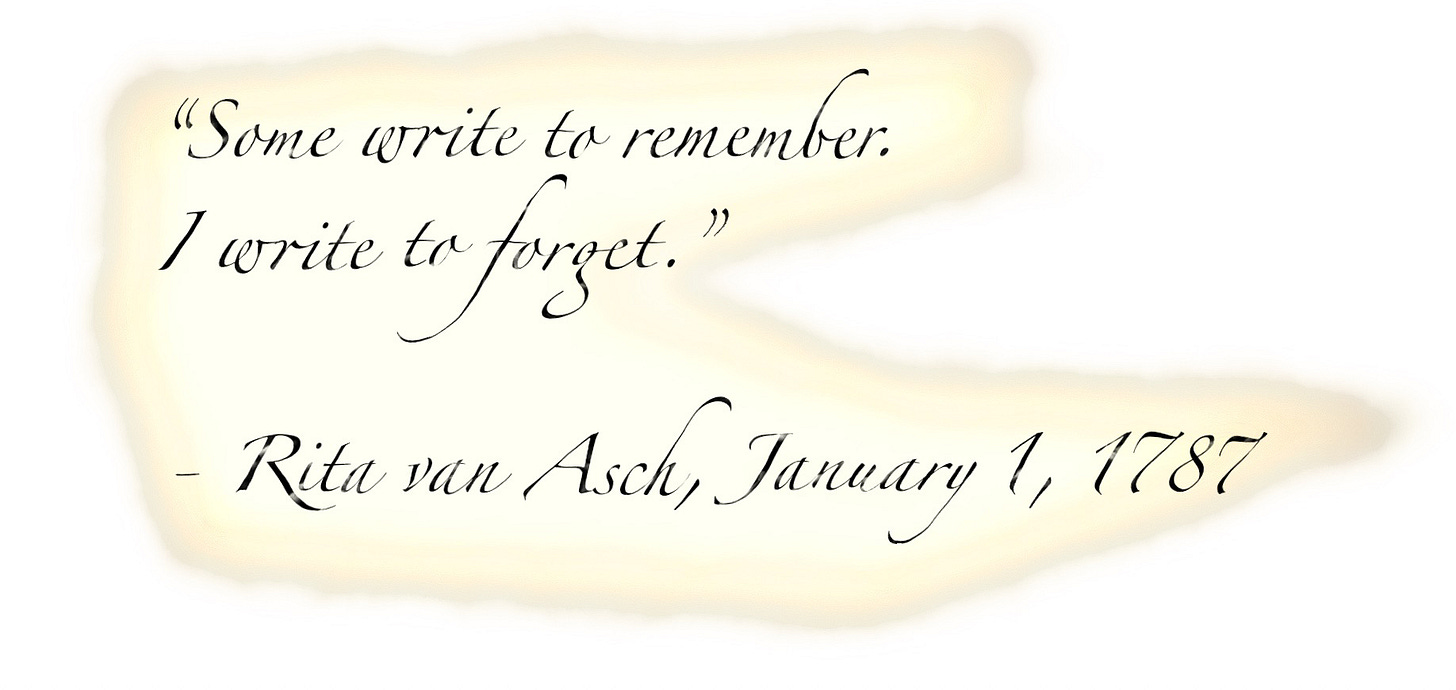 “Some write to remember.
I write to forget.”
- Rita van Asch, January 1, 1787